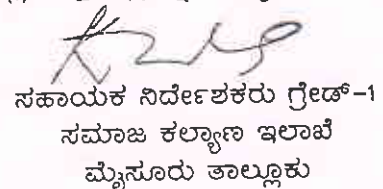 ಸಹಾಯಕ ನಿರ್ದೇಶಕರು ಗ್ರೇಡ್-1
ಸಮಾಜ ಕಲ್ಯಾಣ ಇಲಾಖೆ
ಮೈಸೂರು ತಾಲ್ಲೂಕು